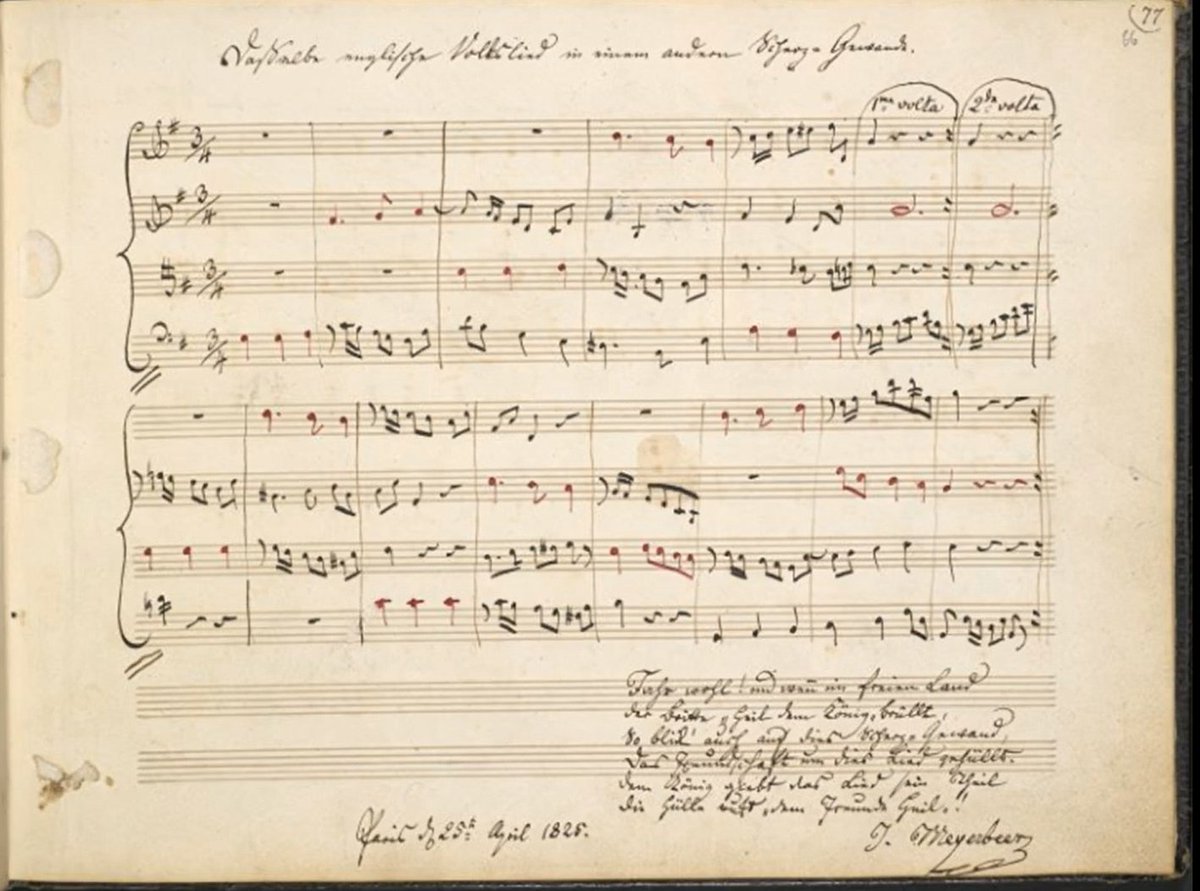 (77
66
Dasselbe englische Volkslied in einem andern Scherz-Gewande.
1ma volta 2da volta
3/4
3/4
3/4
3/4
Fahr wohl! und wenn im freien Land
der Britte „Heil dem König“ brüllt,
So blick' auch auf dies Scherz-Gewand,
Das Freundschaft um dies Lied gehüllt.
dem König giebt das Lied sein Theil
die Hülle ruft „dem Freunde Heil“!!
Paris d 25t April 1825.
J. Meyerbeer